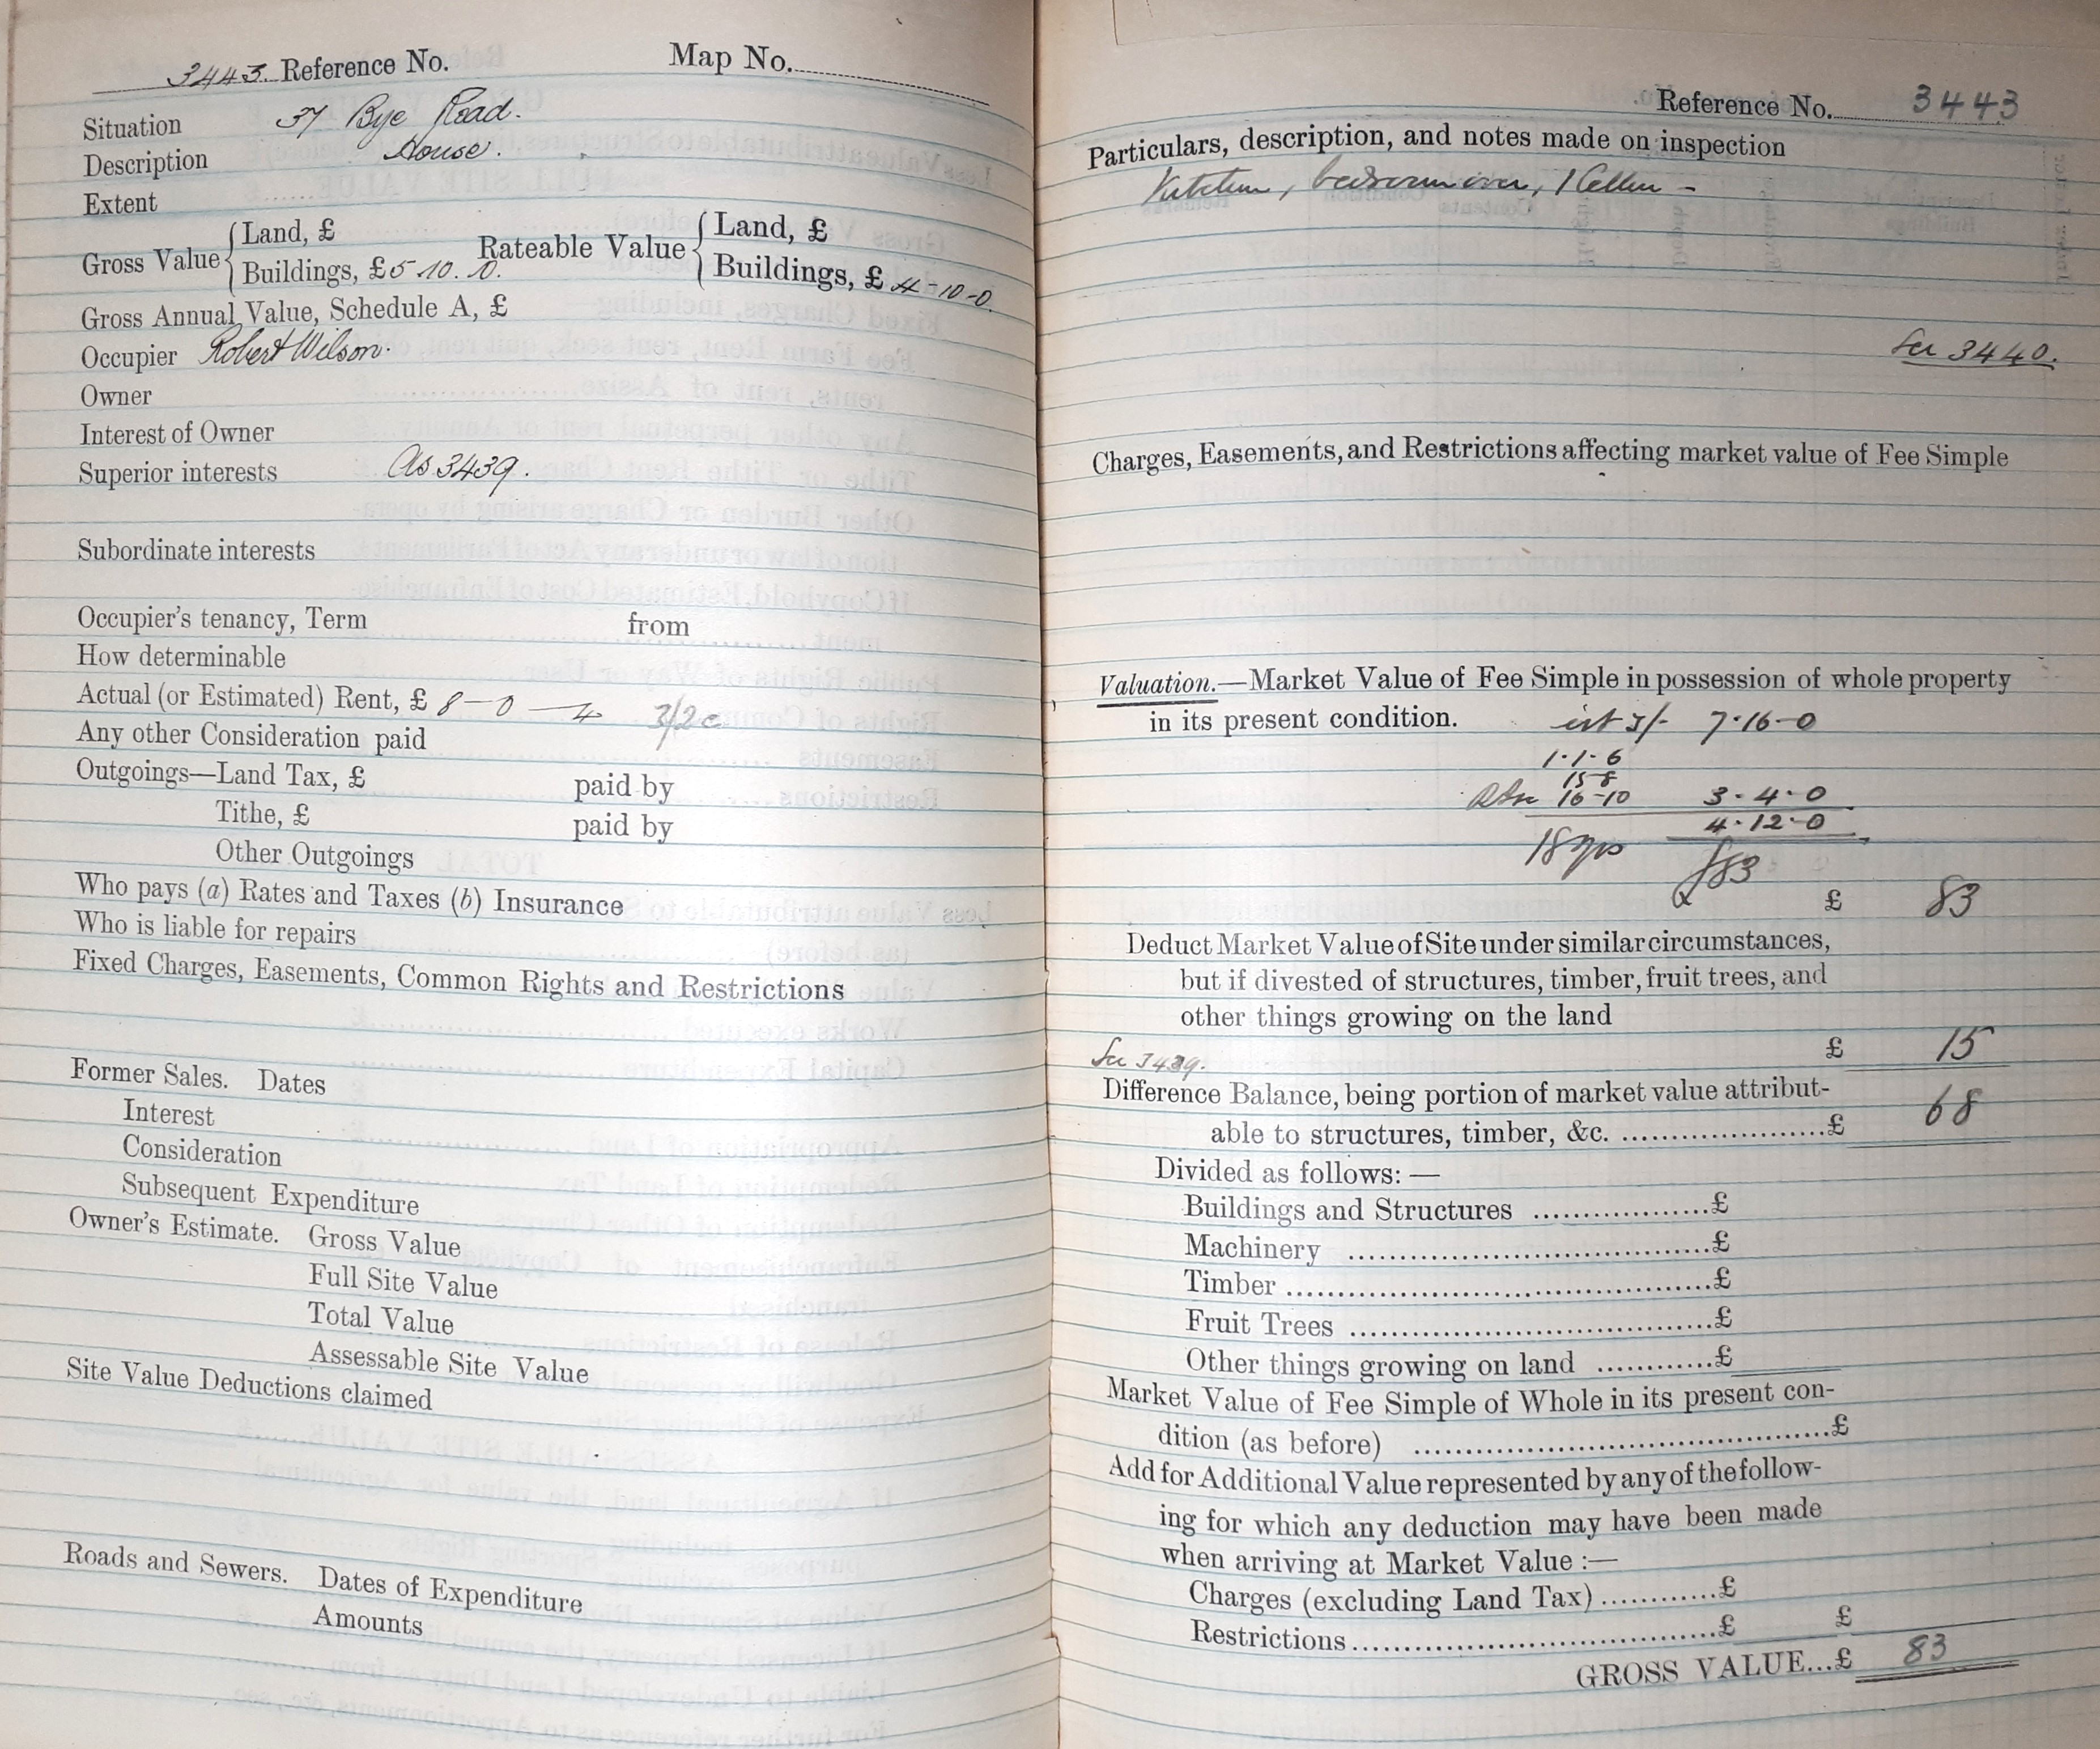 3443. Reference No. Map No.
Situation 37 Bye Road.
Description House.
Extent
Gross Value { Land, £ Rateable Value { Land, £
Buildings, £ 5-10.0. Buildings, £ 4-10-0
Gross Annual Value, Schedule A, £
Occupier Robert Wilson.
Owner
Interest of Owner
Superior interests As 3439.
Subordinate interests
Occupier's tenancy, Term from
How determinable
Actual (or Estimated) Rent, £ 8-0-4 3/2
Any other Consideration paid
Outgoings—Land Tax, £ paid by
Tithe, £ paid by
Other Outgoings
Who pays (a) Rates and Taxes (b) Insurance
Who is liable for repairs
Fixed Charges, Easements, Common Rights and Restrictions
Former Sales. Dates
Interest
Consideration
Subsequent Expenditure
Owner's Estimate. Gross Value
Full Site Value
Total Value
Assessable Site Value
Site Value Deductions claimed
Roads and Sewers. Dates of Expenditure
Amounts
Reference No. 3443
Particulars, description, and notes made on inspection
Kitchen, bedroom over, 1 Cellar -
See 3440.
Charges, Easements, and Restrictions affecting market value of Fee Simple
Valuation.—Market Value of Fee Simple in possession of whole property
in its present condition. est 3/- 7-16-0
1-1-6
15-8
16-10 3-4-0
4-12-0
18 yrs £83
£ 83
Deduct Market Value of Site under similar circumstances,
but if divested of structures, timber, fruit trees, and
other things growing on the land
See 3439. £ 15
Difference Balance, being portion of market value attribut-
able to structures, timber, &c. ....................£ 68
Divided as follows:—
Buildings and Structures .................£
Machinery ...................................£
Timber .........................................£
Fruit Trees ...................................£
Other things growing on land ...........£
Market Value of Fee Simple of Whole in its present con-
dition (as before) ........................................£
Add for Additional Value represented by any of the follow-
ing for which any deduction may have been made
when arriving at Market Value :—
Charges (excluding Land Tax) ...........£
Restrictions ...................................£ £
GROSS VALUE...£ 83